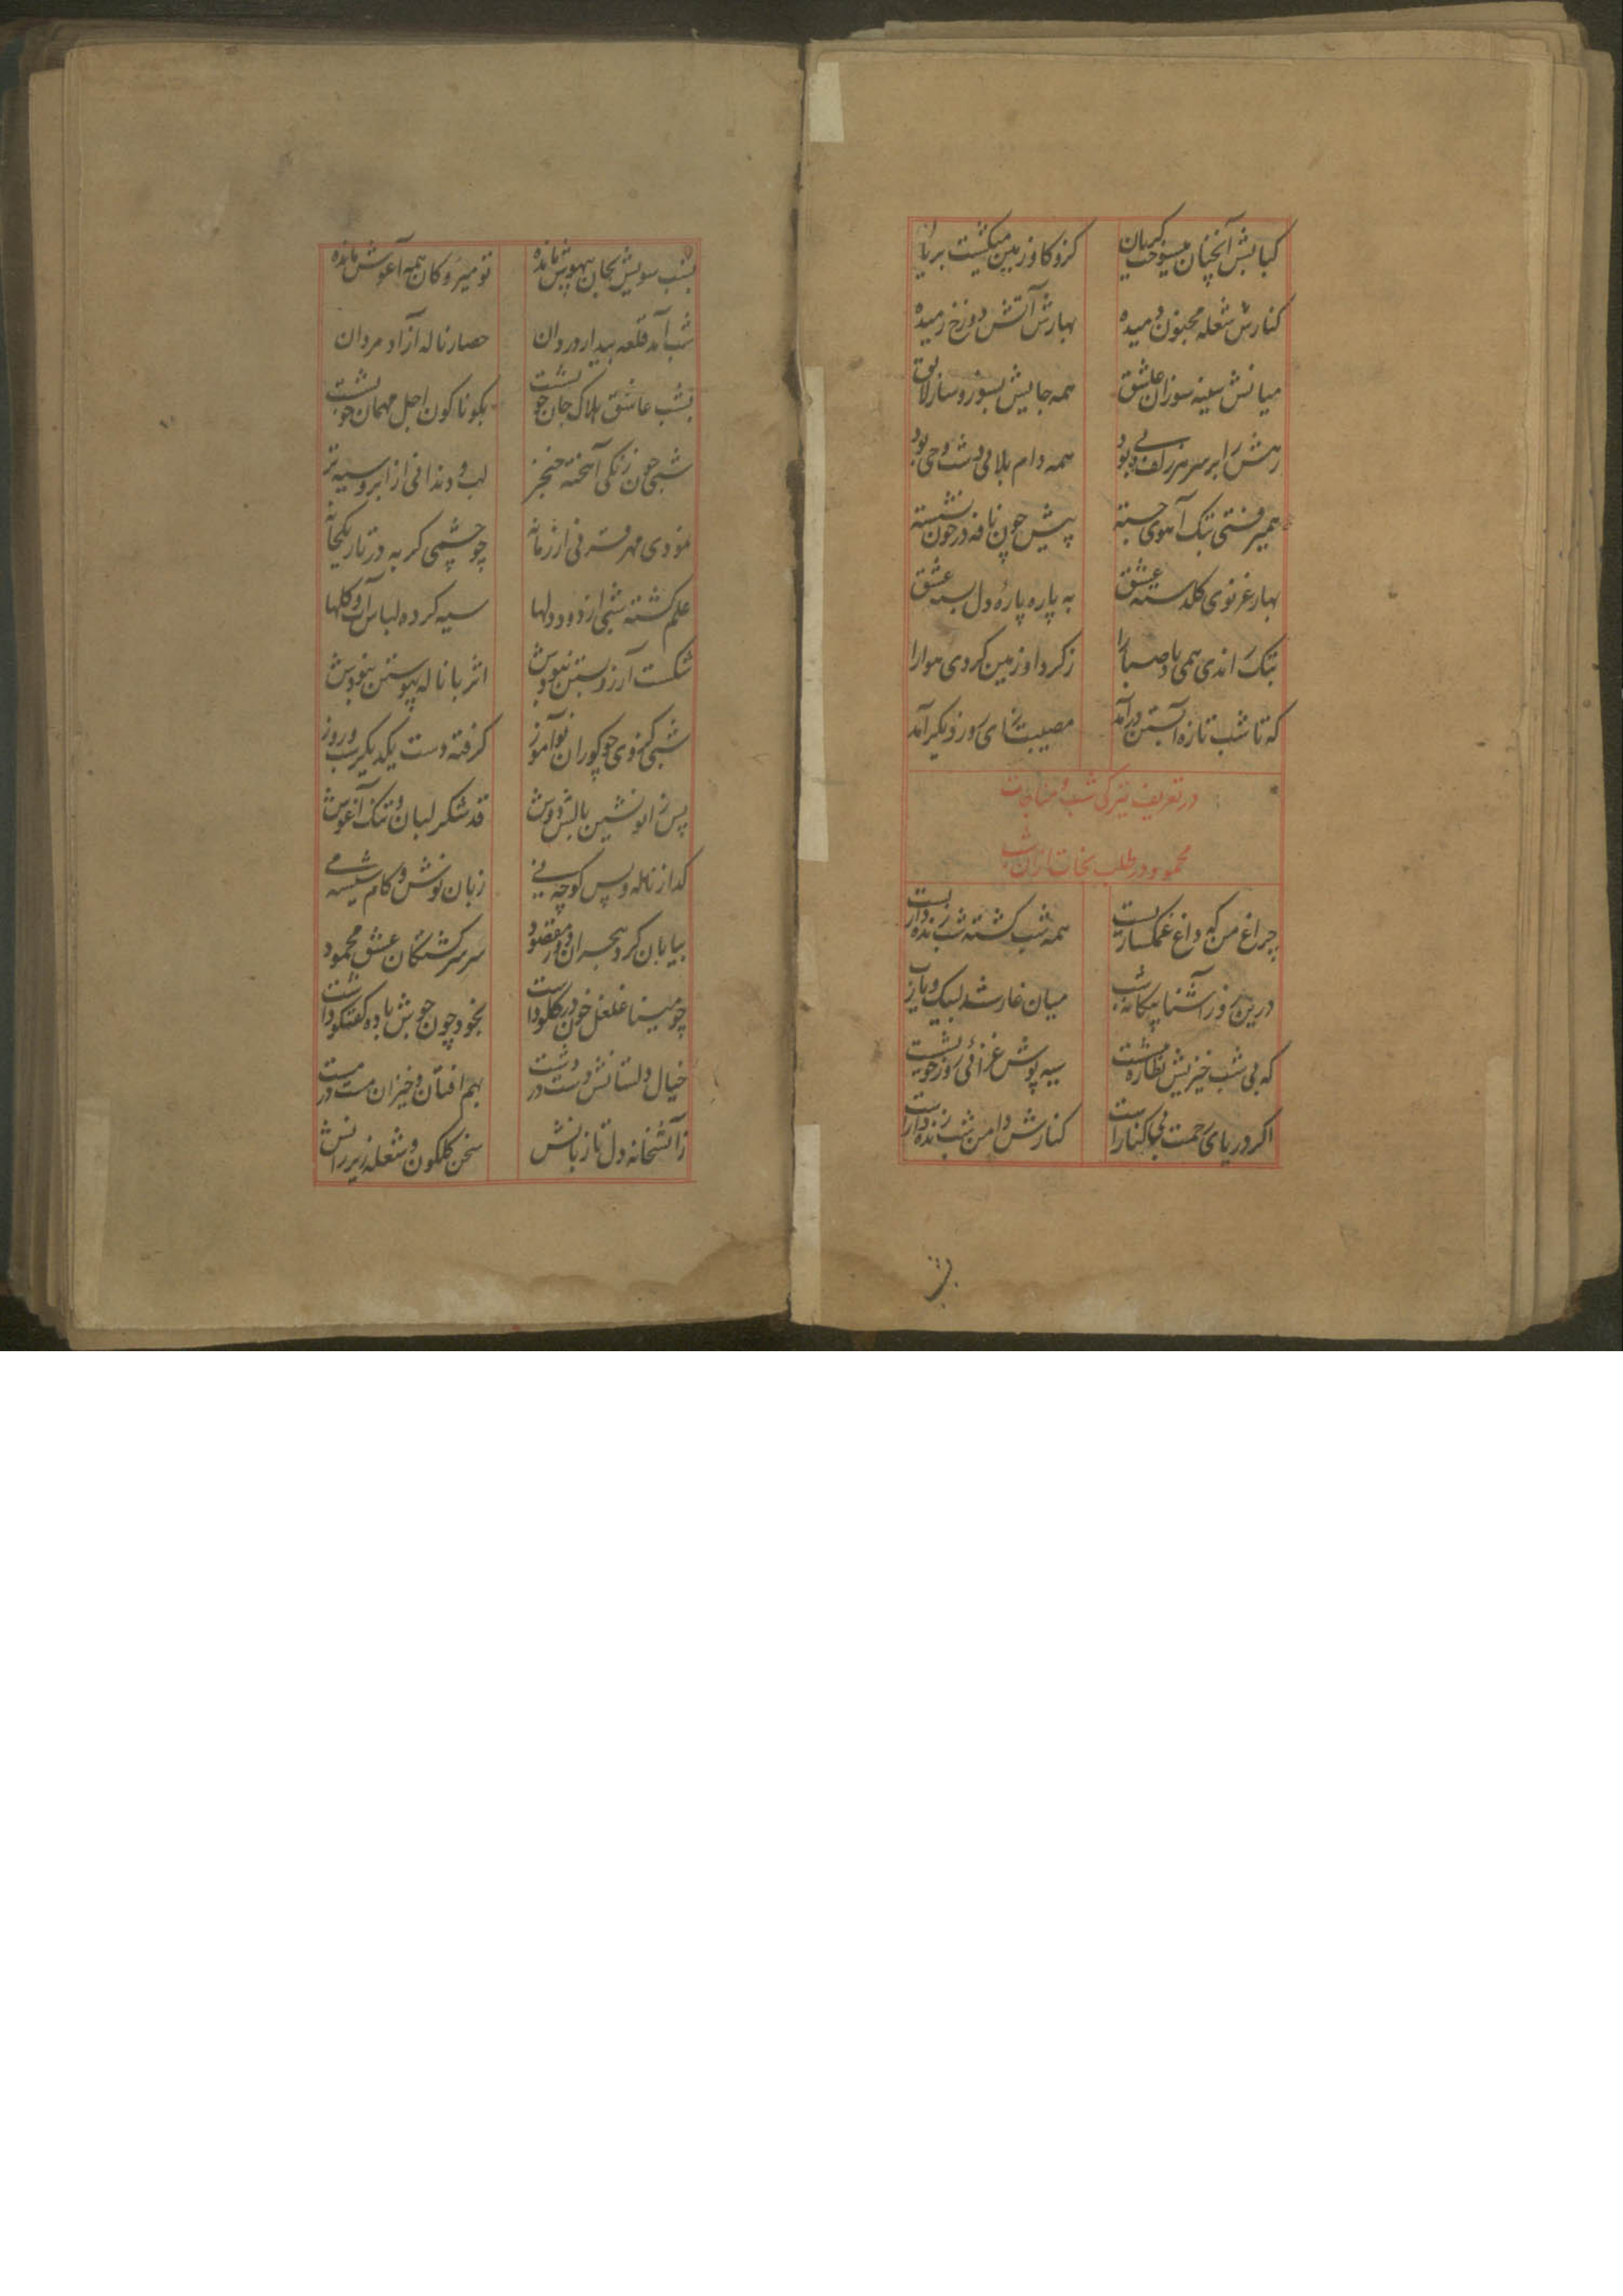 کبابش آنچنان میسوخت کریان کزو کاو زمین میکشت بریان
کنارش شعله مجنون دمیده بهارش آتش دوزخ رمیده
میانش سینه سوزان عاشق همه جایش بسوز و ساز لایق
رهش را بر سر هر زلف دی بود همه دام بلائی دشت وحی بود
همیرفتی بتک آهوی جسته پیش چون نافه در خون نشسته
بهار غزنوی کلدسته عشق به پاره پاره دل بسته عشق
بتک راندی همی باد صبا را ز کرد او زمین کردی هوا را
که تا شب تازه آبستن درآمد مصیبت زای روز دیکر آمد
در تعریف تیرکی شب و مناجات
محمود در طلب نجات ازان شب
چراغ من که داغ غمکساریست همه شب کشته شب زنده داریست
درین روز آشنا بیکانه شب میان غار شد لبیک و یارب
که بی شب خیزیش نظاره زشت سیه پوش عزائی روز خویشست
اکر دریای رحمت بی کنارست کنارش دامن شب زنده دارست
بشب
بشب سویش بجان بیهوش مانده تو میروکان همه آغوش مانده
شب آمد قلعه بیدار دوران حصار ناله آزاد مردان
بشب عاشق هلاک جان خویشست بکوناکون اجل مهمان خویشست
شبی چون زنکی آهخته خنجر لب و دندانی از ابرو سیه تر
نمودی مهر و قرنی از زمانه چو چشمی کربه در تاریک خانه
علم کشته شبی از دود دلها سیه کرده لباس آب و کلها
شکست آرزو بستن نبودش اثر با ناله پیوستن نبودش
شبی کزوی چو کوران نوآموز کرفته دست یکدیکر شب و روز
پس زانو نشین بالش دوش قد شکر لبان و تنک آغوش
کداز ناله و پس کوچه نی زبان نوش و کام شیشه می
بیابان کرد هجران دور مقصود سر سرکشتکان عشق محمود
چو مینا غلغل خون در کلو داشت بخود چون جوش باده کفتکو داشت
خیال دلستانش دست در دست بهم افتان و خیزان مست در مست
ز آتشخانه دل تا زبانش سخن کلکون و شعله زیر رانش